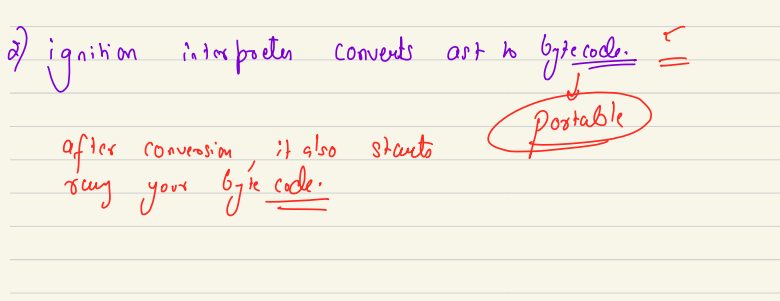 2) ignition interpreter converts ast to bytecode.
Portable
after conversion, it also starts
runing your byte code.